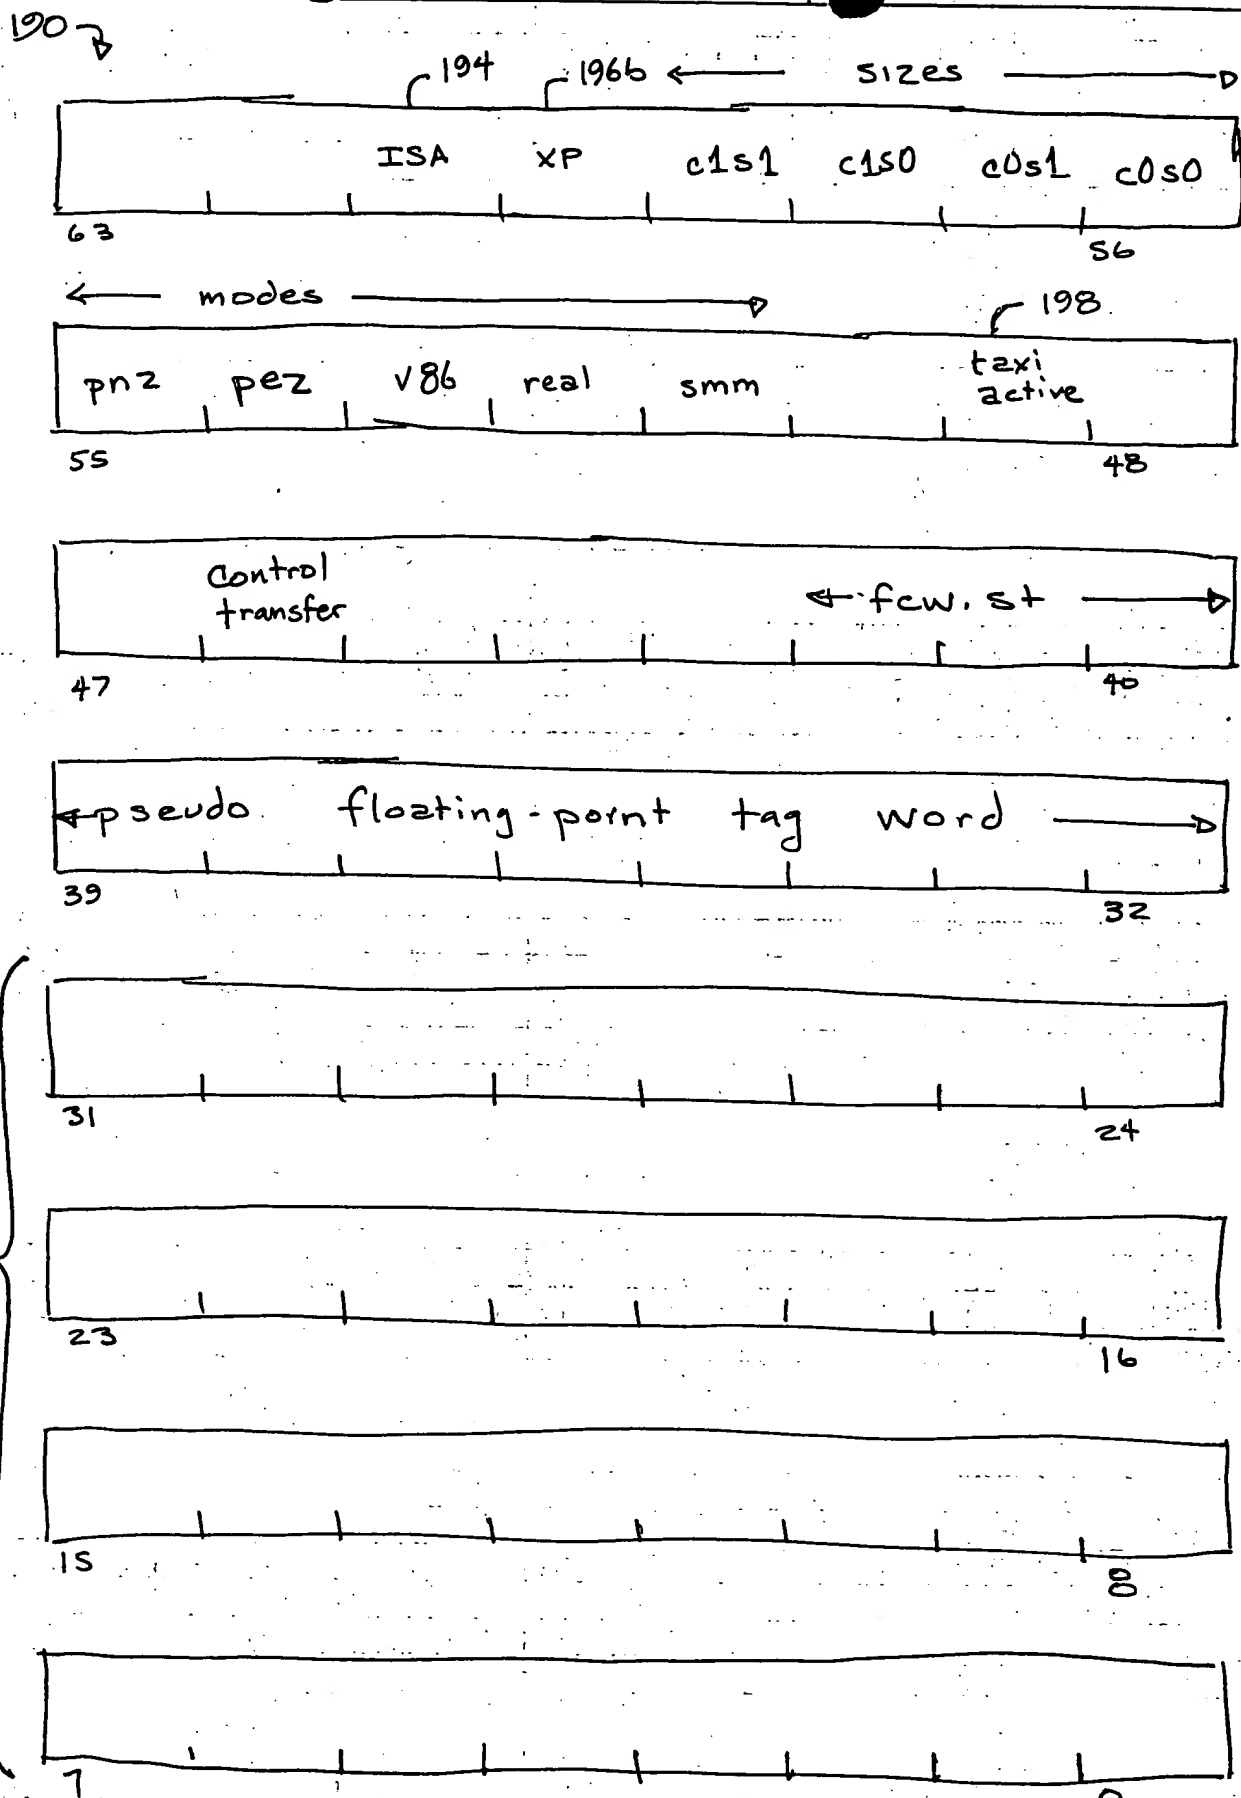 190
194 196b sizes
ISA XP c1s1 c1s0 c0s1 c0s0
63 56
modes 198
pnz pez v86 real smm taxi active
55 48
control transfer fcw.st
47 40
pseudo floating-point tag word
39 32
31 24
23 16
15 8
7